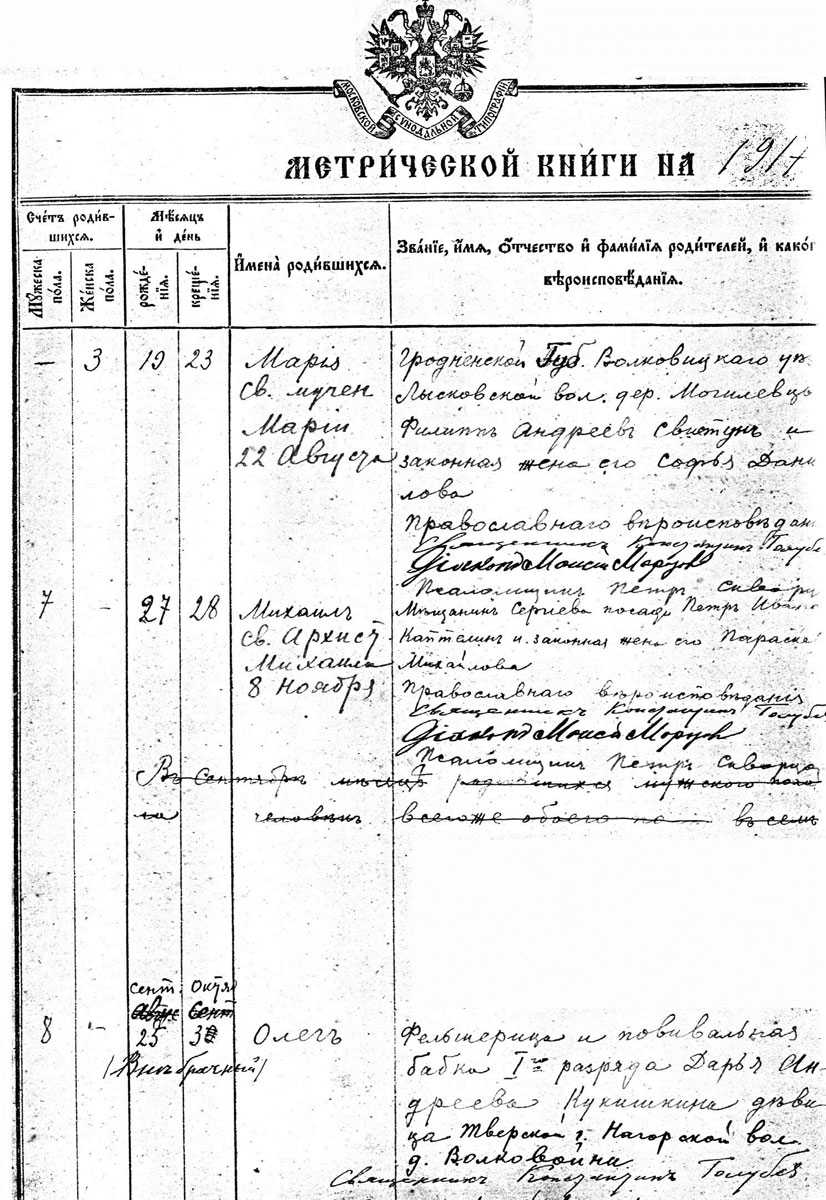 МОСКОВСКОЙ СѴНОДАЛЬНОЙ ТИПОГРАФІИ
МЕТРИ́ЧЕСКОЙ КНИ́ГИ НА 1914
Сче́тъ роди́в-
шихся.
Мѣ́сяцъ
и҆ де́нь
И҆мена̀ роди́вшихся.
Зва́нїе, и҆́мя, ѻ҆́тчество и҆ фами́лїя роди́телей, и҆ како́г
вѣроисповѣ́данїя.
Мꙋ́жеска по́ла.
Же́нска по́ла.
рожде́нїя.
креще́нїя.
— 3 19 23
Марія
св. мучен
Маріи
22 Августа
Гродненской Губ. Волковицкаго уѣ
Лысковской вол. дер. Могилевць
Филиппъ Андреевъ Свистунъ и
законная жена его Софья Дани
лова
Православнаго вѣроисповѣдан
Священникъ Константинъ Голубе
Діаконъ Моисій
Псаломщикъ Петръ Сквор
7 - 27 28
Михаилъ
св. Архист
Михаила
8 Ноября
Мѣщанинъ Сергіева посада Петръ Ивано
Каптелинъ и законная жена его Параске
Михайлова
Православнаго вѣроисповѣданія
Священникъ Константинъ Голубе
Діаконъ Моисій
Псаломщикъ Петръ Скворцо
Въ Сентябрѣ мѣсяцѣ родившихся мужского пола
человѣкъ всегоже обоего по
сент. Октя
Авгус Сент
8 - 25 3
(Внѣбрачный)
Олегъ
Фельшерица и повивальная
бабка I го разряда Дарья Ан-
дреева Кукишкина дѣви
ца Тверской г. Нагорской вол
д. Волковойни
Священникъ Константинъ Голубе